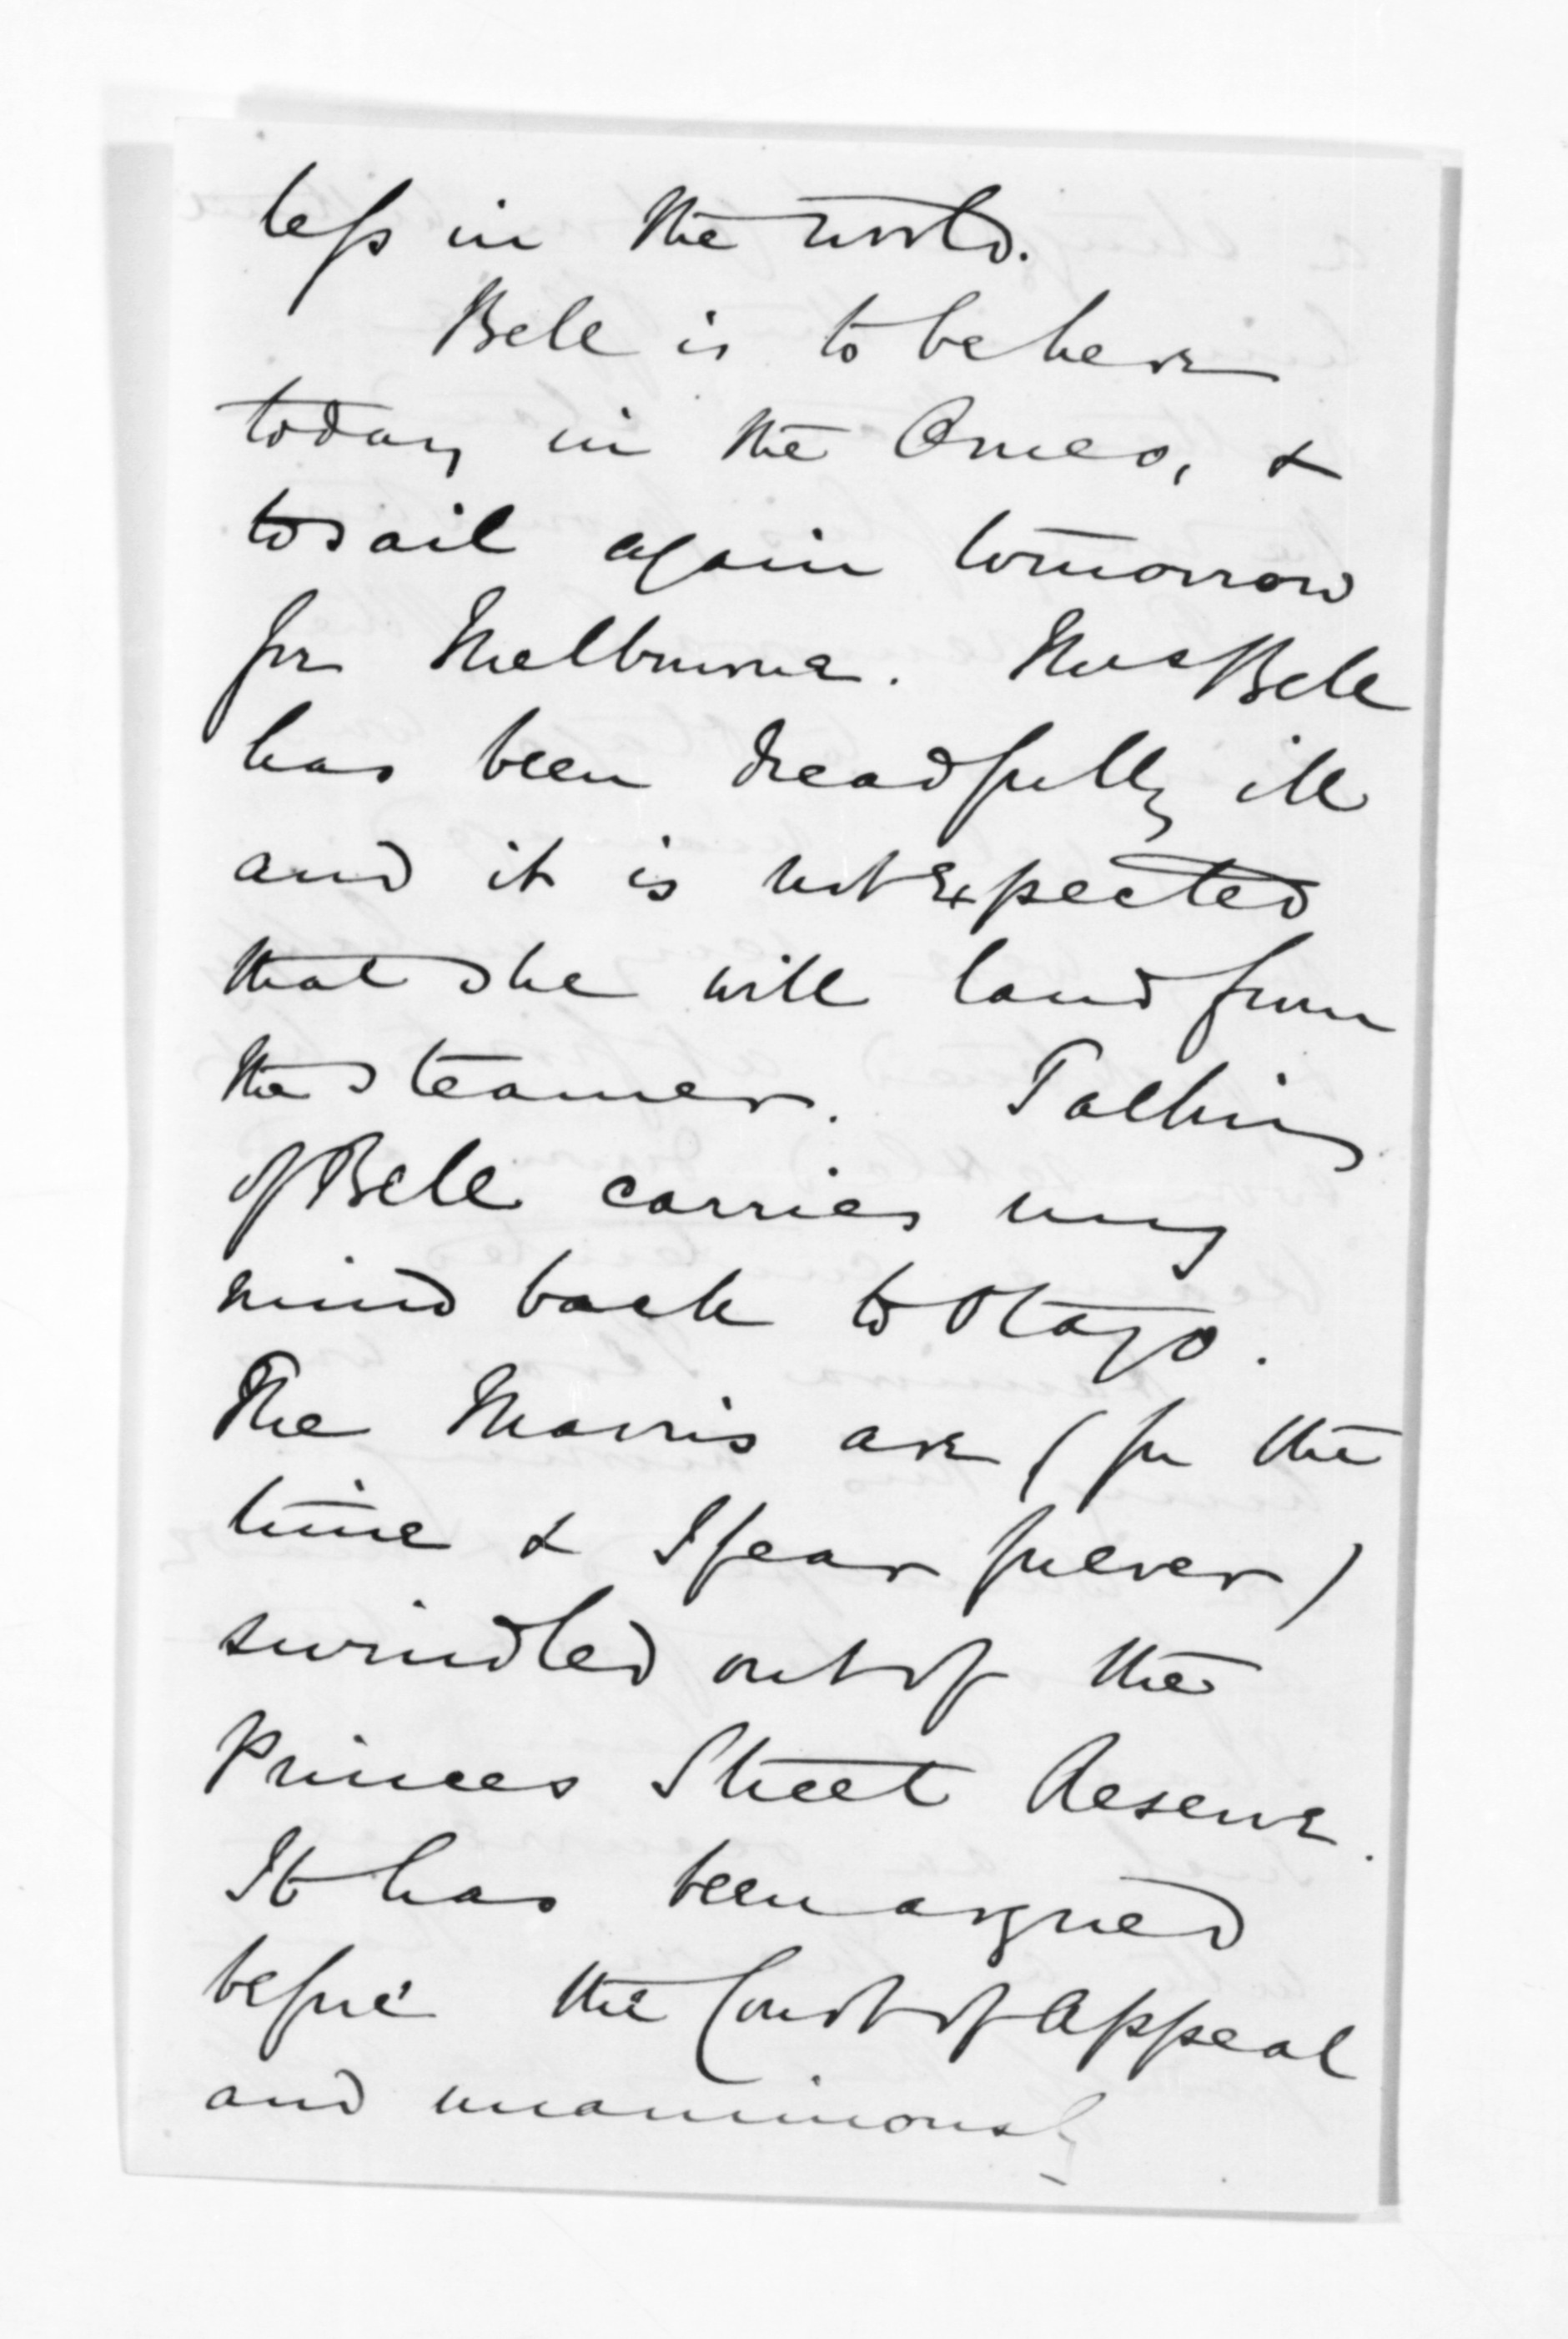 less in the world.
Bell is to be here
today in the Omeo, &
to sail again tomorrow
for Melbourne. Mrs Bell
has been dreadfully ill
and it is not expected
that she will land from
the steamer. Talking
of Bell carries my
mind back to Otago.
The Maoris are (for the
time & I fear for ever)
swindled out of the
Princes Street Reserve.
It has been argued
before the Court of Appeal
and unanimously